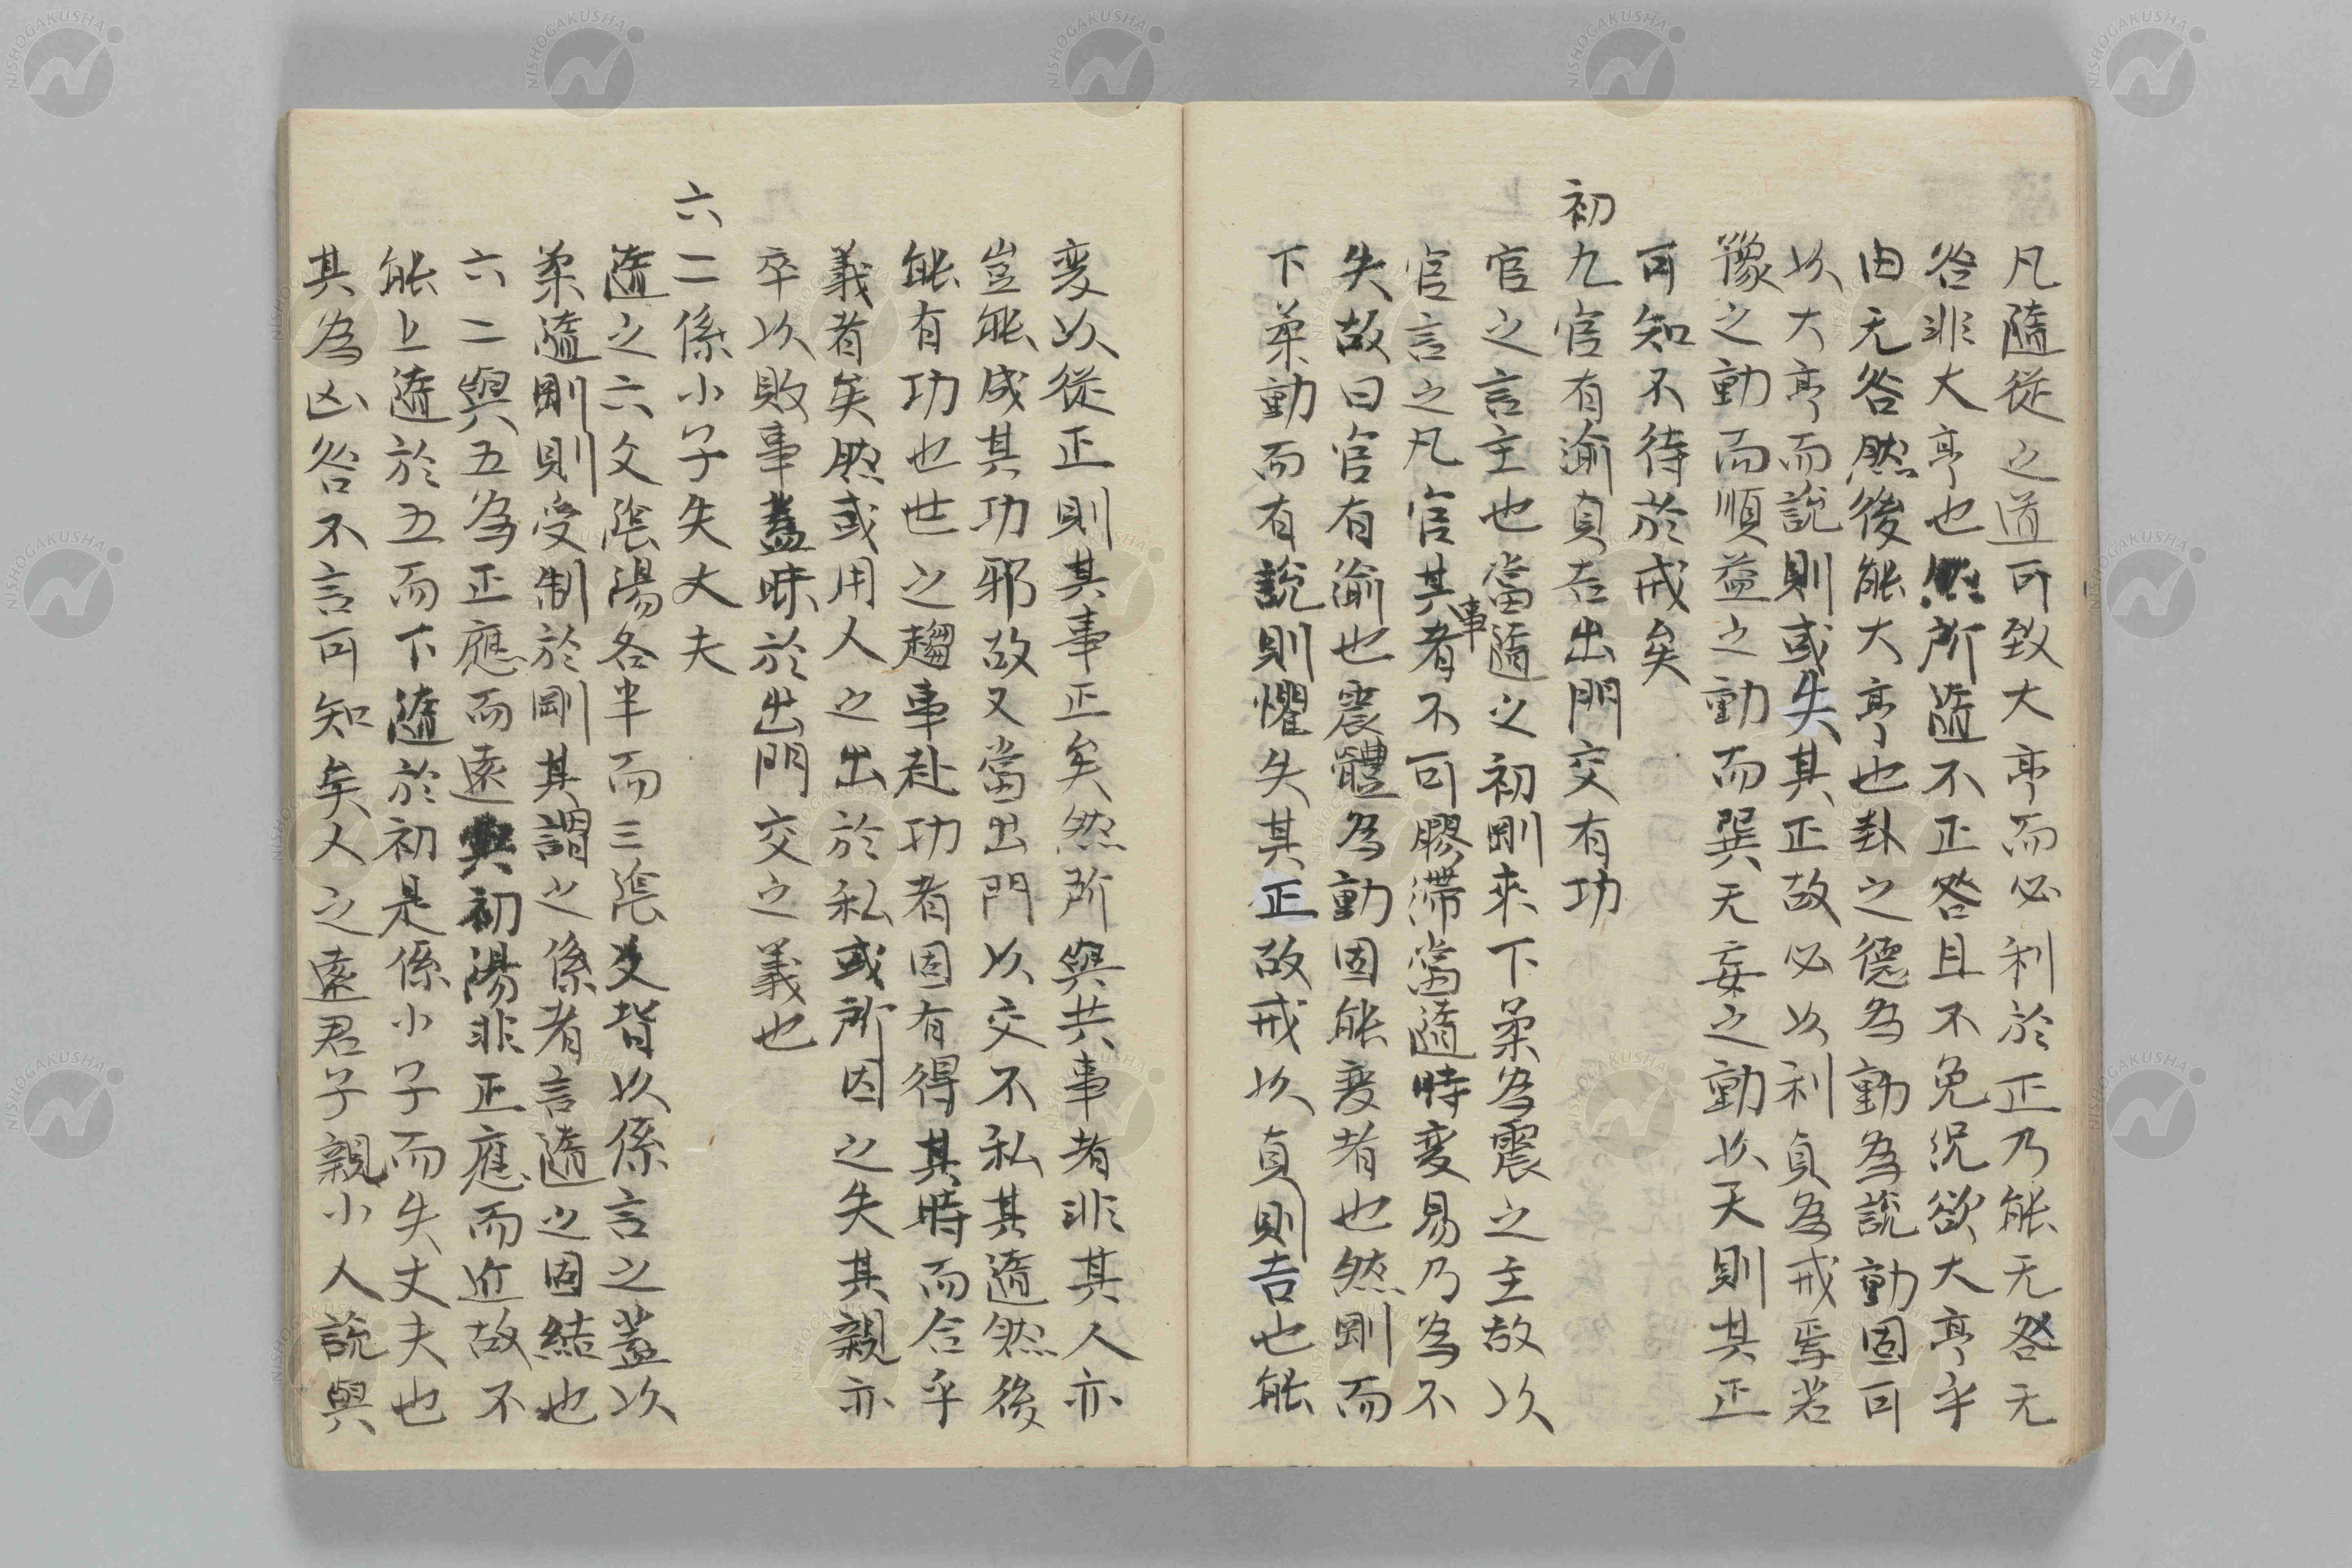 凡隨從之道可致大亨而必利於正乃能无咎无
咎非大亨也所隨不正咎且不免況欲大亨乎
由无咎然後能大亨也卦之德為動為說動固可
以大亨而說則或失其正故必以利貞為戒焉若
豫之動而順益之動而巽无妄之動以天則其正
可知不待於戒矣
初九官有渝貞吉出門交有功
官之言主也當隨之初剛來下柔為震之主故以
官言之凡官其事者不可膠滯當隨時變易乃為不
失故曰官有渝也震體為動固能変者也然剛而
下柔動而有說則懼失其正故戒以貞則吉也能
変以從正則其事正矣然所與共事者非其人亦
豈能成其功邪故又當出門以交不私其隨然後
能有功也世之趨事赴功者固有得其時而合乎
義者矣然或用人之出於私或所因之失其親亦
卒以敗事蓋昧於出門交之義也
六二係小子失丈夫
隨之六爻陰陽各半而三陰爻皆以係言之蓋以
柔隨剛則受制於剛其謂之係者言隨之固結也
六二與五為正應而遠與初陽非正應而近故不
能上隨於五而下隨於初是係小子而失丈夫也
其為凶咎不言可知矣人之遠君子親小人說與
NISHOGAKUSHA